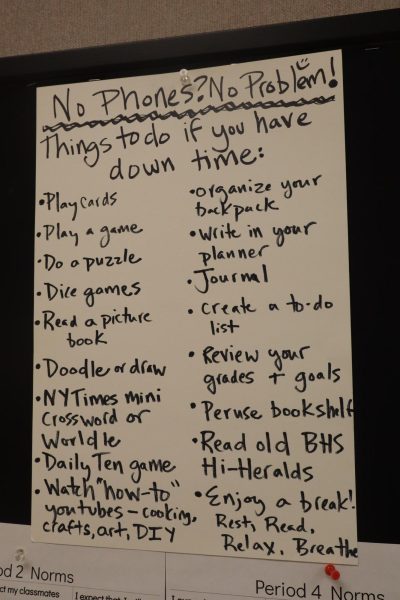 No Phones? No Problem!
Things to do if you have
down time:
• Play cards
• Play a game
• Do a puzzle
• Dice games
• Read a picture
book
• Doodle or draw
• NYTimes mini
Crossword or
Worldle
• Daily Ten game
• Watch "how-to"
youtubes – cooking,
crafts, art, DIY
• organize your
backpack
• Write in your
planner
• Journal
• Create a to-do
list
• Review your
grades + goals
• Peruse bookshelf
• Read old BHS
Hi-Heralds
• Enjoy a break!
Rest, Read,
Relax, Breathe
od 2 Norms
Period 4 Norms
ct my classmates
I expect that